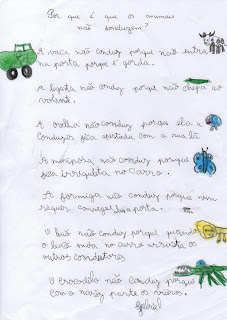 Por que é que os animais
não conduzem?
A vaca não conduz porque não entra
na porta porque é gorda.
A lagarta não conduz porque não chega ao
volante.
A ovelha não conduz porque ela a
conduzir fica apertada com a sua lã
A mariposa não conduz porque
fica irrequieta no carro.
A formiga não conduz porque nem
sequer consegue a porta.
O leão não conduz porque quando
o leão anda no carro arrasta os
outros condutores.
O crocodilo não conduz porque
com o nariz parte os vidros.
Gabriel